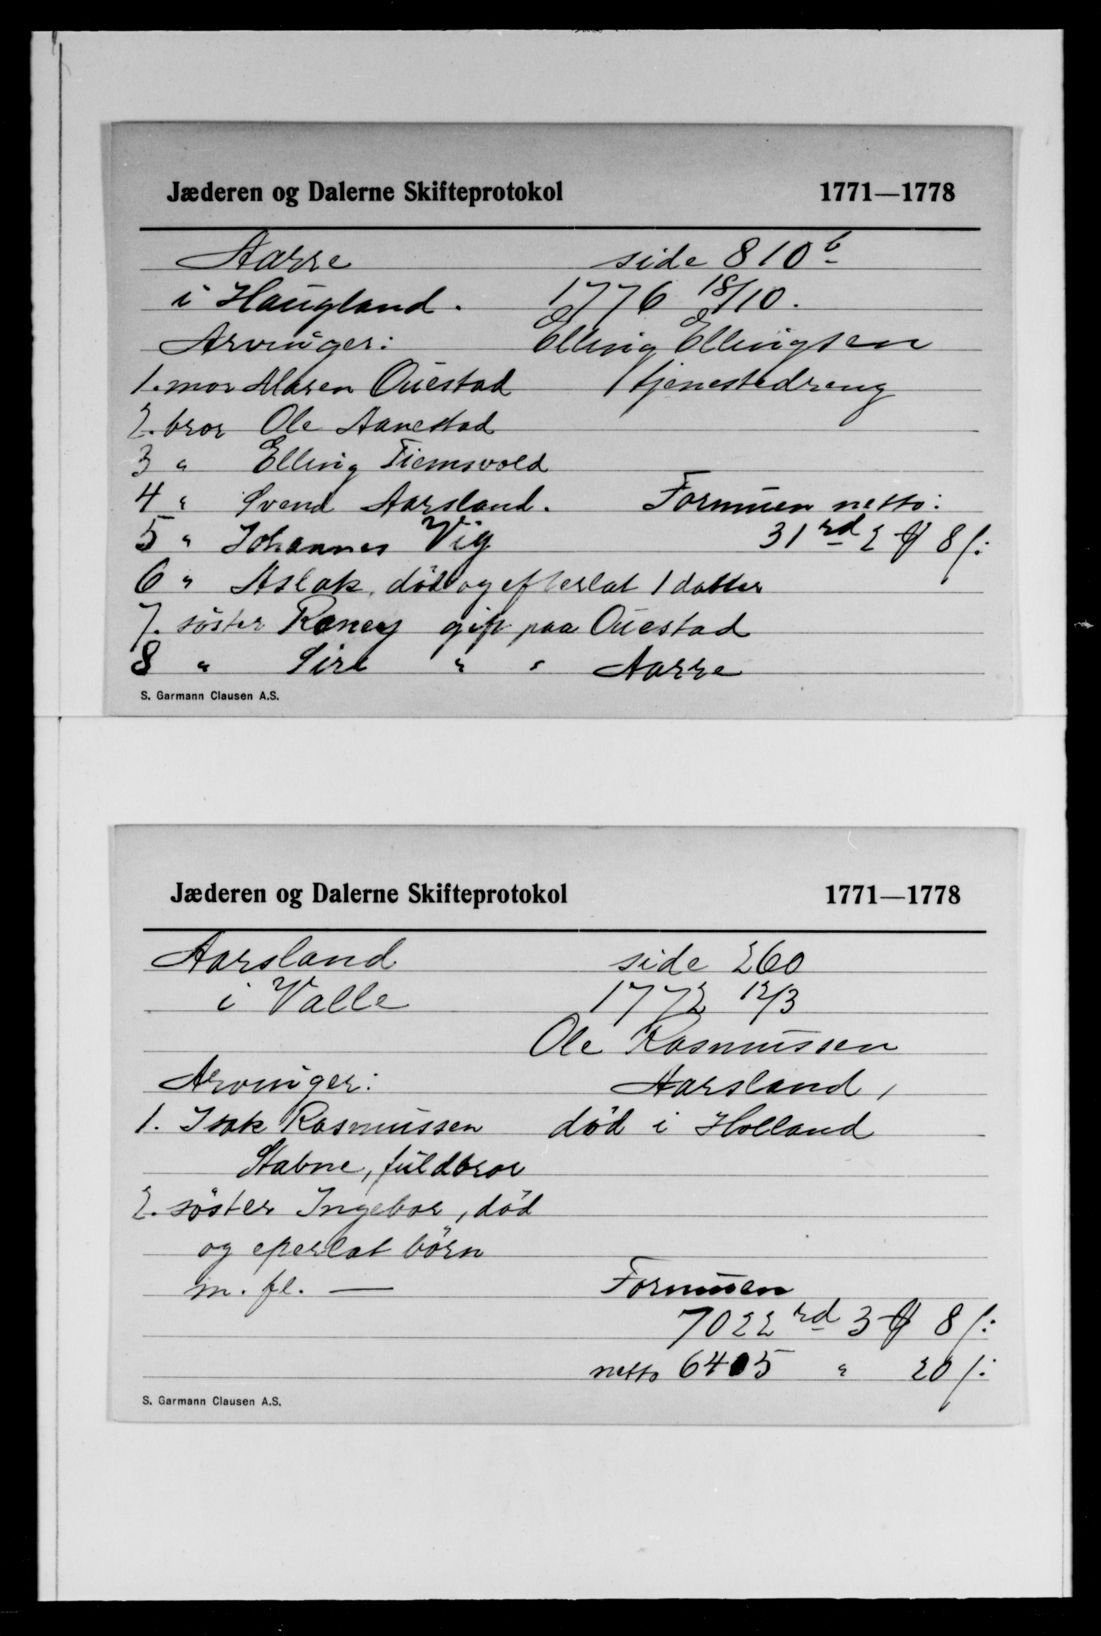 Jæderen og Dalerne Skifteprotokol 1771—1778
Aarre side 810 b
i Haugland. 1776 18/10.
Arvinger: Elling Ellingsen
1. mor Maren Ouestad tjenestedreng
2. bror Ole Aanestad
3 " Elling Tiemsvold
4 " Svend Aarsland. Formuen netto:
5 " Johannes Vig 31 rd 2 8 s:
6 " Aslak, död og efterlat 1 datter
7. söster Raney gift paa Ouestad
8 " Siri " " Aarre
S. Garmann Clausen A.S.
Jæderen og Dalerne Skifteprotokol 1771—1778
Aarsland side 260
i Valle 1772 12/3
Ole Rasmussen
Arvinger: Aarsland,
1. Isak Rasmussen död i Holland
Stabne, fuldbror
2. söster Ingebor, död
og efterlat börn
m. fl. — Formuen
7022 rd 3 8 s:
netto 6405 " 20 s:
S. Garmann Clausen A.S.